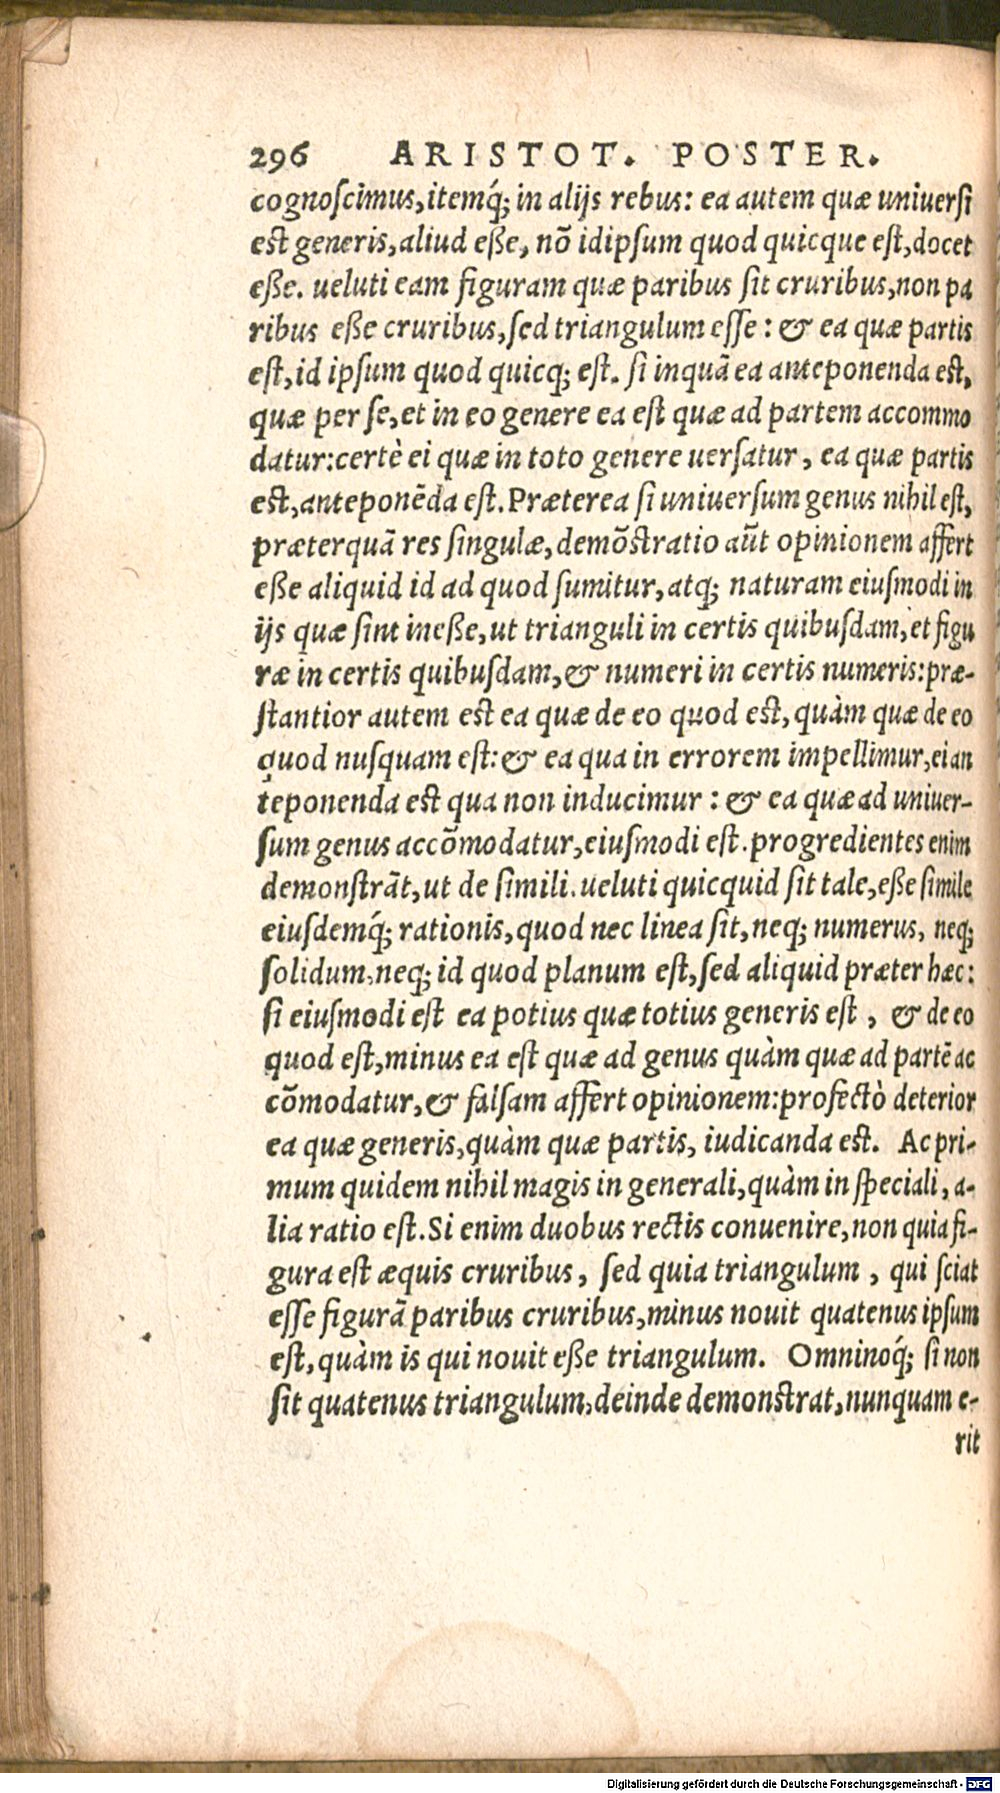 296 ARISTOT. POSTER.
cognoscimus, itemq́; in alijs rebus: ea autem quæ uniuersi
est generis, aliud eße, nō idipsum quod quicque est, docet
eße. ueluti eam figuram quæ paribus sit cruribus, non pa
ribus eße cruribus, sed triangulum esse: & ea quæ partis
est, id ipsum quod quicq; est. si inquā ea anteponenda est,
quæ per se, et in eo genere ea est quæ ad partem accommo
datur: certè ei quæ in toto genere uersatur, ea quæ partis
est, anteponēda est. Præterea si uniuersum genus nihil est,
præterquā res singulæ, demōstratio aūt opinionem affert
eße aliquid id ad quod sumitur, atq; naturam eiusmodi in
ijs quæ sint ineße, ut trianguli in certis quibusdam, et figu
ræ in certis quibusdam, & numeri in certis numeris: præ-
stantior autem est ea quæ de eo quod est, quàm quæ de eo
quod nusquam est: & ea qua in errorem impellimur, ei an
teponenda est qua non inducimur: & ea quæ ad uniuer-
sum genus accōmodatur, eiusmodi est. progredientes enim
demonstrāt, ut de simili. ueluti quicquid sit tale, eße simile
eiusdemq́; rationis, quod nec linea sit, neq; numerus, neq;
solidum, neq; id quod planum est, sed aliquid præter hæc:
si eiusmodi est ea potius quæ totius generis est, & de eo
quod est, minus ea est quæ ad genus quàm quæ ad partē ac
cōmodatur, & falsam affert opinionem: profectò deterior
ea quæ generis, quàm quæ partis, iudicanda est. Ac pri-
mum quidem nihil magis in generali, quàm in speciali, a-
lia ratio est. Si enim duobus rectis conuenire, non quia fi-
gura est æquis cruribus, sed quia triangulum, qui sciat
esse figurā paribus cruribus, minus nouit quatenus ipsum
est, quàm is qui nouit eße triangulum. Omninoq́; si non
sit quatenus triangulum, deinde demonstrat, nunquam e-
rit
Digitalisierung gefördert durch die Deutsche Forschungsgemeinschaft - DFG